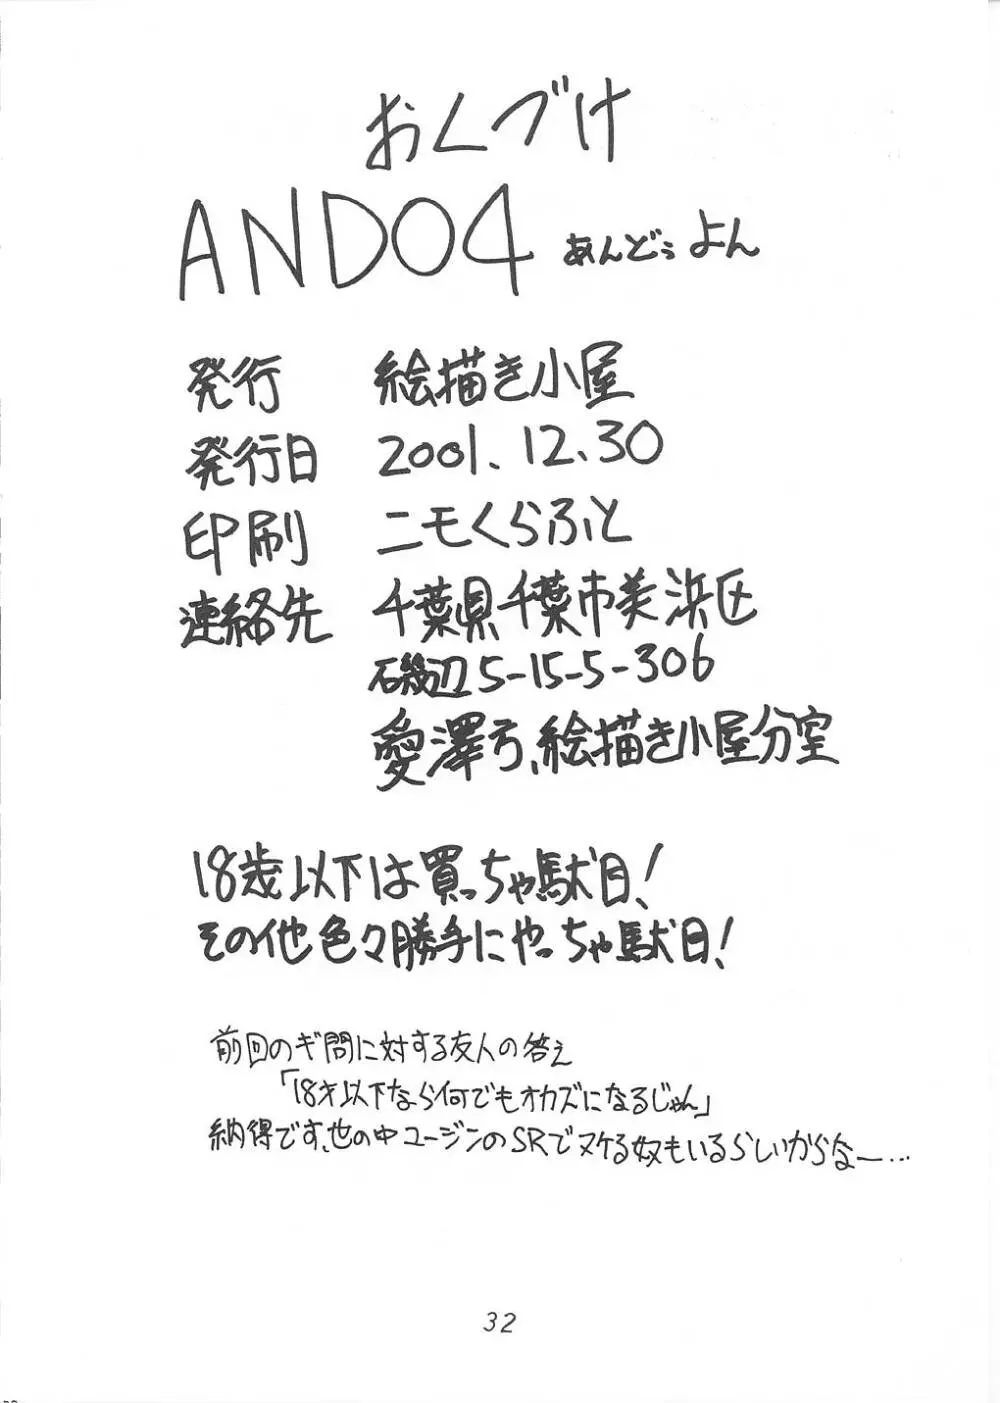 おくづけ
ANDO4 あんどぅ よん
発行 絵描き小屋
発行日 2001.12.30
印刷 ニモくらふと
連絡先 千葉県千葉市美浜区
磯辺5-15-5-306
愛澤弓、絵描き小屋分室
18歳以下は買っちゃ駄目!
その他色々勝手にやっちゃ駄目!
前回のギ問に対する友人の答え
「18才以下なら何でもオカズになるじゃん」
納得です、世の中ユージンのSRでヌケる奴もいるらしいからなー…
32